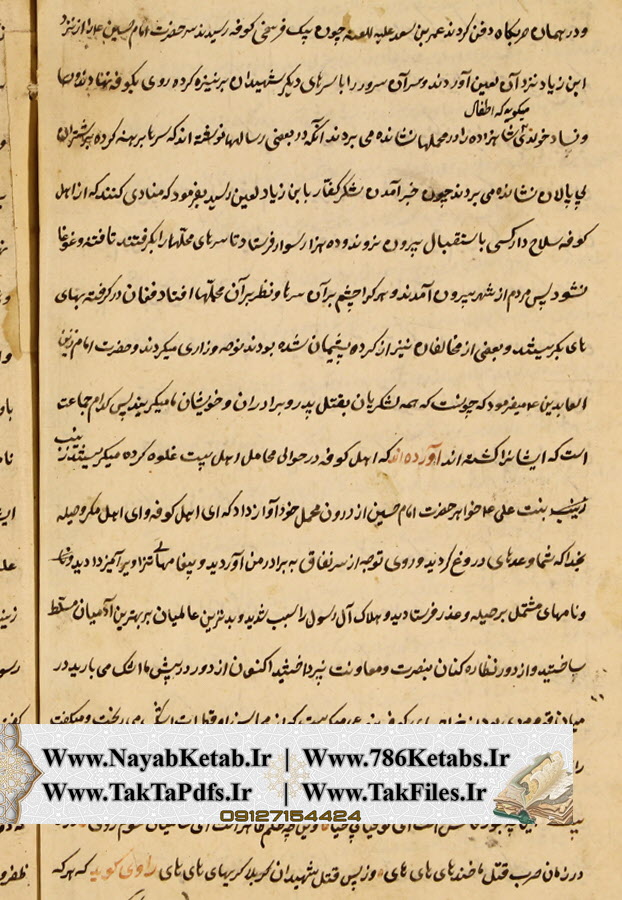 و در همان حربگاه دفن کردند عمر بن سعد علیه اللعنه چون بیک فرسخی کوفه رسیدند سر حضرت امام حسین ع را از نزد
ابن زیاد نزد آن لعین آوردند و سر آن سرور را با سرهای دیگر شهیدان بر نیزه کرده روی بکوفه نهادند
میگویند که اطفال
و نساء خرد را در محملها نشانده می بردند آنکه در بعضی رسالها نوشته اند که سر تا برهنه کرده بر شتران
بی پالان نشانده می بردند چون خبر آمدن لشکر کفار با بن زیاد لعین رسید بفرمود که منادی کنند که از اهل
کوفه سلاح دار کسی باستقبال بیرون نرود و ده هزار سوار فرستاد تا سرهای محلها را بگرفتند تا فتنه و غوغا
نشود پس مردم از شهر بیرون آمدند و هر کرا چشم بر آن سرها و نظر بر آن محملها افتاد فغان در گرفته بهای
های بگریستند و بعضی از مخالفان نیز از کرده پشیمان شده بودند نوحه و زاری میکردند و حضرت امام زین
العابدین ع میفرمود که چونست که همه لشکریان بقتل پدر و برادران و خویشان ما میگریند پس کدام جماعت
است که ایشانرا کشته اند آورده اند که اهل کوفه در حوالی محامل اهل بیت غلوه کرده میگریستند زینب
بنت علی ع خواهر حضرت امام حسین از درون محمل خود آواز داد که ای اهل کوفه و ای اهل مکر و حیله
بخدا که شما وعدهای دروغ کردید و روی توجه از سر نفاق به برادر من آوردید و پیغامهای تزویر آمیز دادید
و نامهای مشتمل بر حیله و غدر فرستادید و هلاک آل رسول را سبب شدید و بدترین عالمیان بر بهترین آدمیان مسلط
ساختید و از دور نظاره کنان بنصرت و معاونت نپرداختید اکنون از دور در پیش ما اشک می بارید در
Www.NayabKetab.Ir | Www.786Ketabs.Ir
Www.TakTaPdfs.Ir | Www.TakFiles.Ir
09127154424
در زمان حرب قتل ما خندهای های های و ز پس قتل شهیدان کربلا گریهای های های راوی کوید که هر که